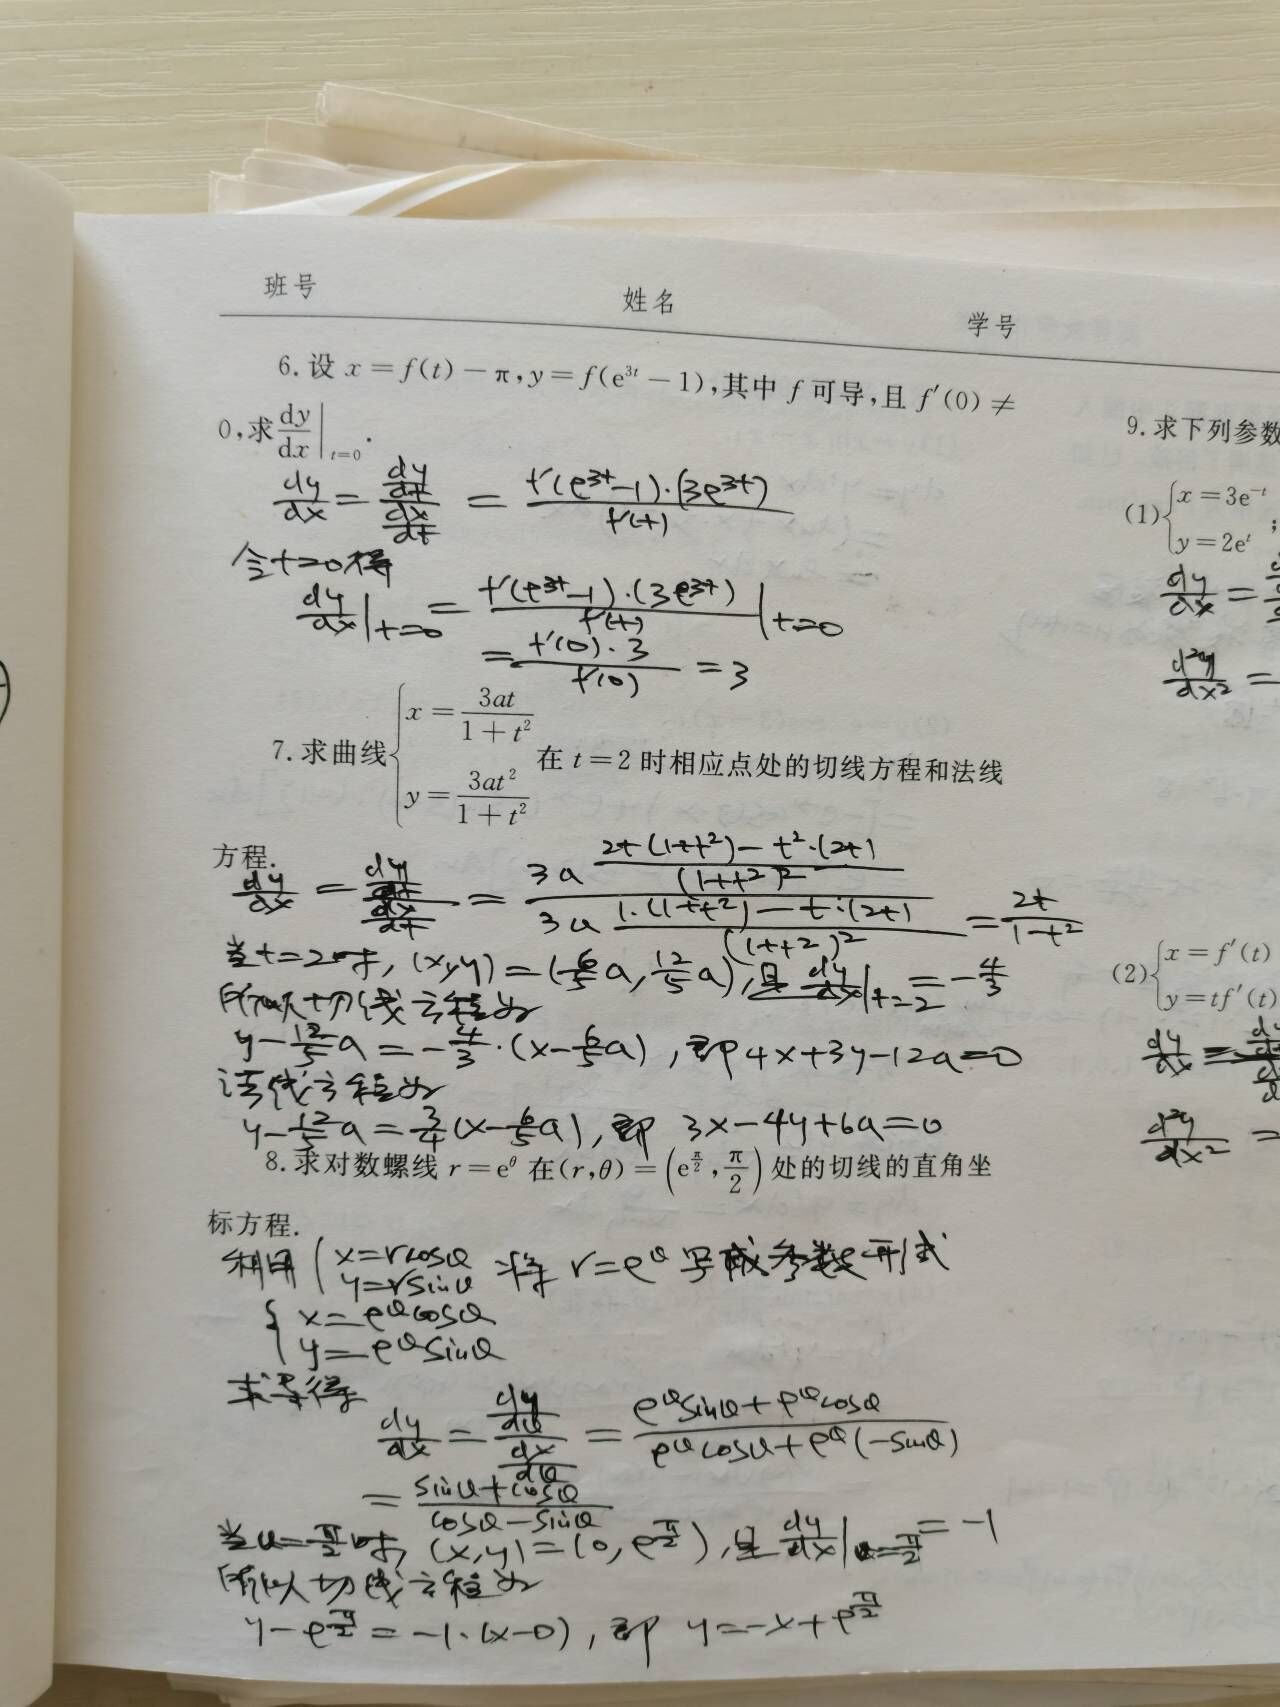 班号 姓名 学号
6. 设 x = f(t) − π, y = f(e^{3t} − 1), 其中 f 可导, 且 f′(0) ≠
0, 求 dy/dx |_{t=0}.
dy/dx = (dy/dt)/(dx/dt) = f′(e^{3t}−1)·(3e^{3t}) / f′(t)
令t=0得
dy/dx |_{t=0} = f′(e^{3t}−1)·(3e^{3t}) / f′(t) |_{t=0}
= f′(0)·3 / f′(0) = 3
7. 求曲线 { x = 3at/(1+t²) y = 3at²/(1+t²) 在 t = 2 时相应点处的切线方程和法线
方程.
dy/dx = (dy/dt)/(dx/dt) = 3a (2t(1+t²) − t²·(2t))/(1+t²)² / 3a (1·(1+t²) − t·(2t))/(1+t²)² = 2t/(1−t²)
当t=2时, (x,y) = (6/5 a, 12/5 a), 且 dy/dx |_{t=2} = −4/3
所以切线方程为
y − 12/5 a = −4/3·(x − 6/5 a), 即 4x+3y−12a=0
法线方程为
y − 12/5 a = 3/4 (x − 6/5 a), 即 3x−4y+6a=0
8. 求对数螺线 r = e^θ 在 (r,θ) = (e^{π/2}, π/2) 处的切线的直角坐
标方程.
利用 { x=rcosθ y=rsinθ 将 r=e^θ 写成参数形式
{ x=e^θcosθ
y=e^θsinθ
求导得
dy/dx = (dy/dθ)/(dx/dθ) = (e^θsinθ + e^θcosθ)/(e^θcosθ + e^θ(−sinθ))
= (sinθ+cosθ)/(cosθ−sinθ)
当θ=π/2时, (x,y) = (0, e^{π/2}), 且 dy/dx |_{θ=π/2} = −1
所以切线方程为
y − e^{π/2} = −1·(x−0), 即 y=−x+e^{π/2}
9. 求下列参数
(1) { x = 3e^{−t} y = 2e^t ;
dy/dx =
d²y/dx² =
(2) { x = f′(t) y = tf′(t)
dy/dx =
d²y/dx² =